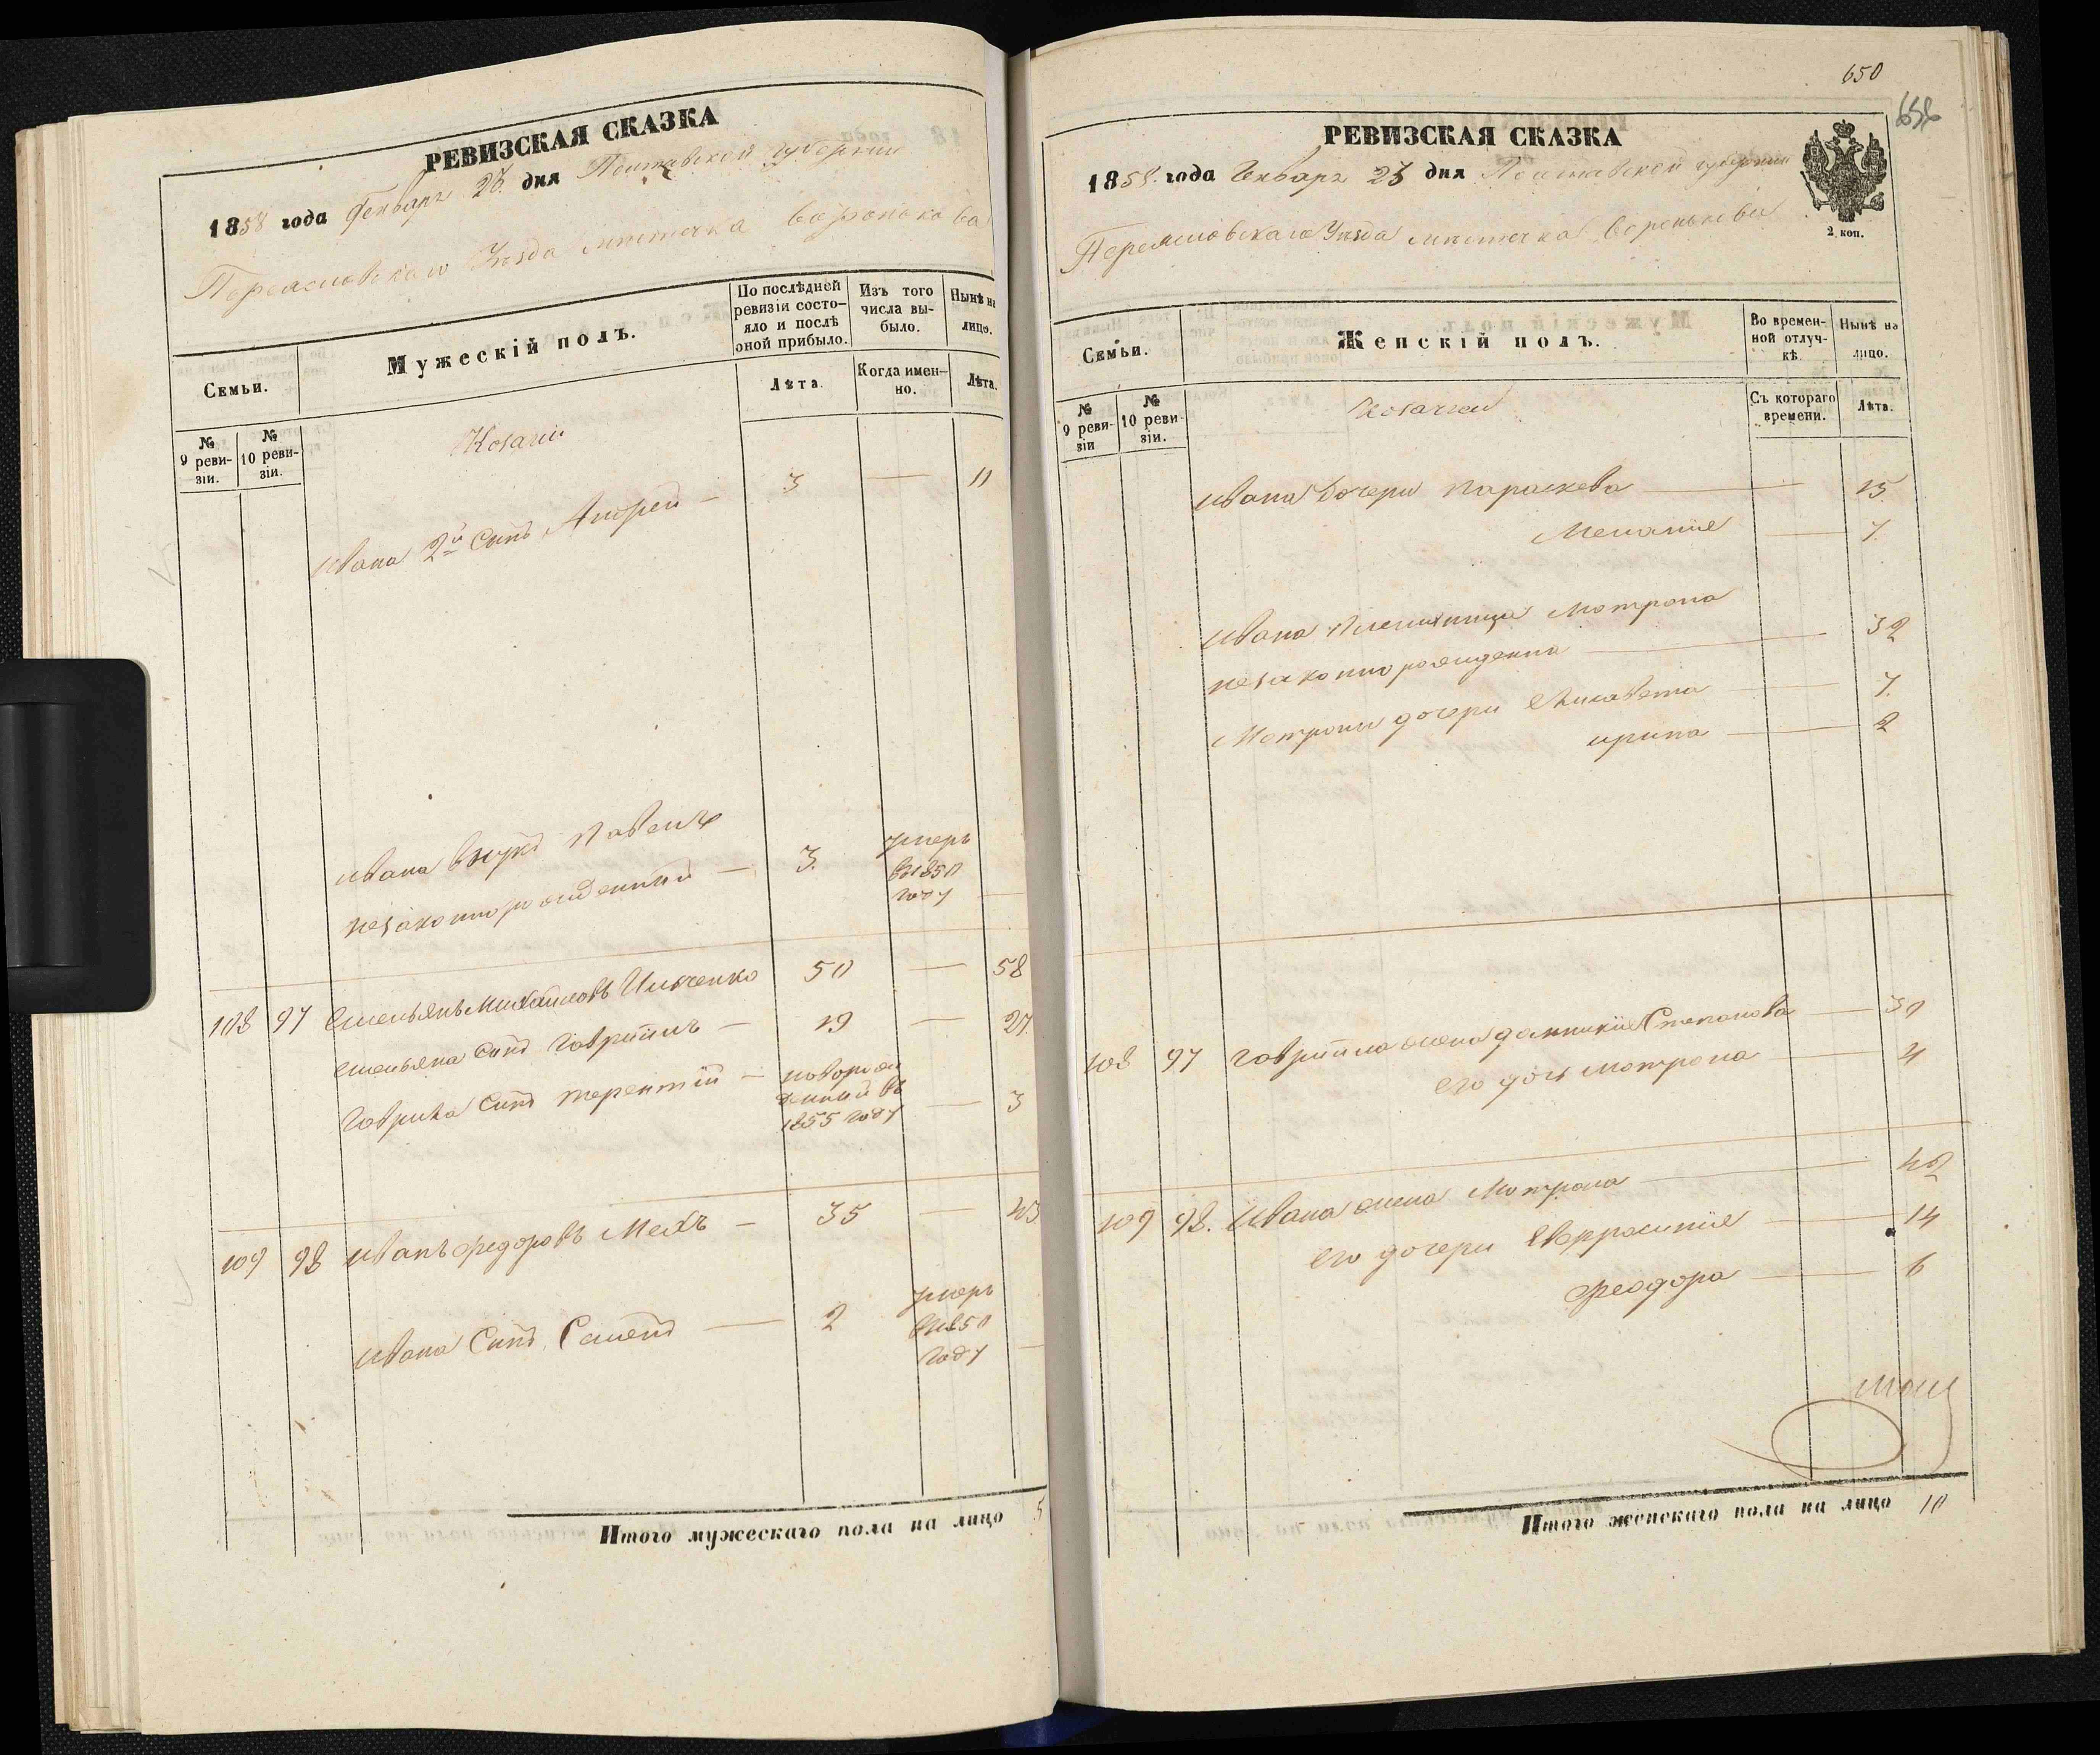 РЕВИЗСКАЯ СКАЗКА
1858 года Генваря 23 дня Полтавской губернии
Переяславскаго Уѣзда мѣстечка Воронькова
Семьи.
Мужескій полъ.
По послѣдней ревизіи состояло и послѣ оной прибыло.
Изъ того числа выбыло.
Нынѣ на лицо.
№ 9 ревизіи.
№ 10 ревизіи.
Лѣта.
Когда именно.
Лѣта.
Козаки
Ивана 2й сынъ Андрей — 3 — 11
Ивана внукъ Павелъ
незаконнорожденный — 3. умеръ
въ 1850
году —
108 97 Емельянъ Михайловъ Ильченко 50 — 58
Емельяна сынъ Гавріилъ — 19 — 27.
Гаврила сынъ Терентій — новорож
денный въ
1855 году — 3
109 98 Иванъ Федоровъ Мехъ — 35 — 43
Ивана сынъ Семенъ — 2 умеръ
въ 1850
году —
Итого мужескаго пола на лицо 5
650
РЕВИЗСКАЯ СКАЗКА
1858 года Генваря 23 дня Полтавской губернии
2 коп.
Переяславскаго Уѣзда мѣстечка Воронькова
Семьи.
Женскій полъ.
Во временной отлучкѣ.
Нынѣ на лицо.
№ 9 ревизіи
№ 10 ревизіи.
Съ котораго времени.
Лѣта.
Козачки
Ивана дочери Параскева — 15
Меланія — 7.
Ивана племянница Мотрона
незаконнорожденна — 32
Мотроны дочери Елисавета — 7.
Ирина — 2
108 97 Гавріила жена Домникія Степанова — 30
его дочь Мотрона — 4
109 98. Ивана жена Мотрона — 42
его дочери Евфросинія — 14
Феодора — 6
Итого женскаго пола на лицо 10